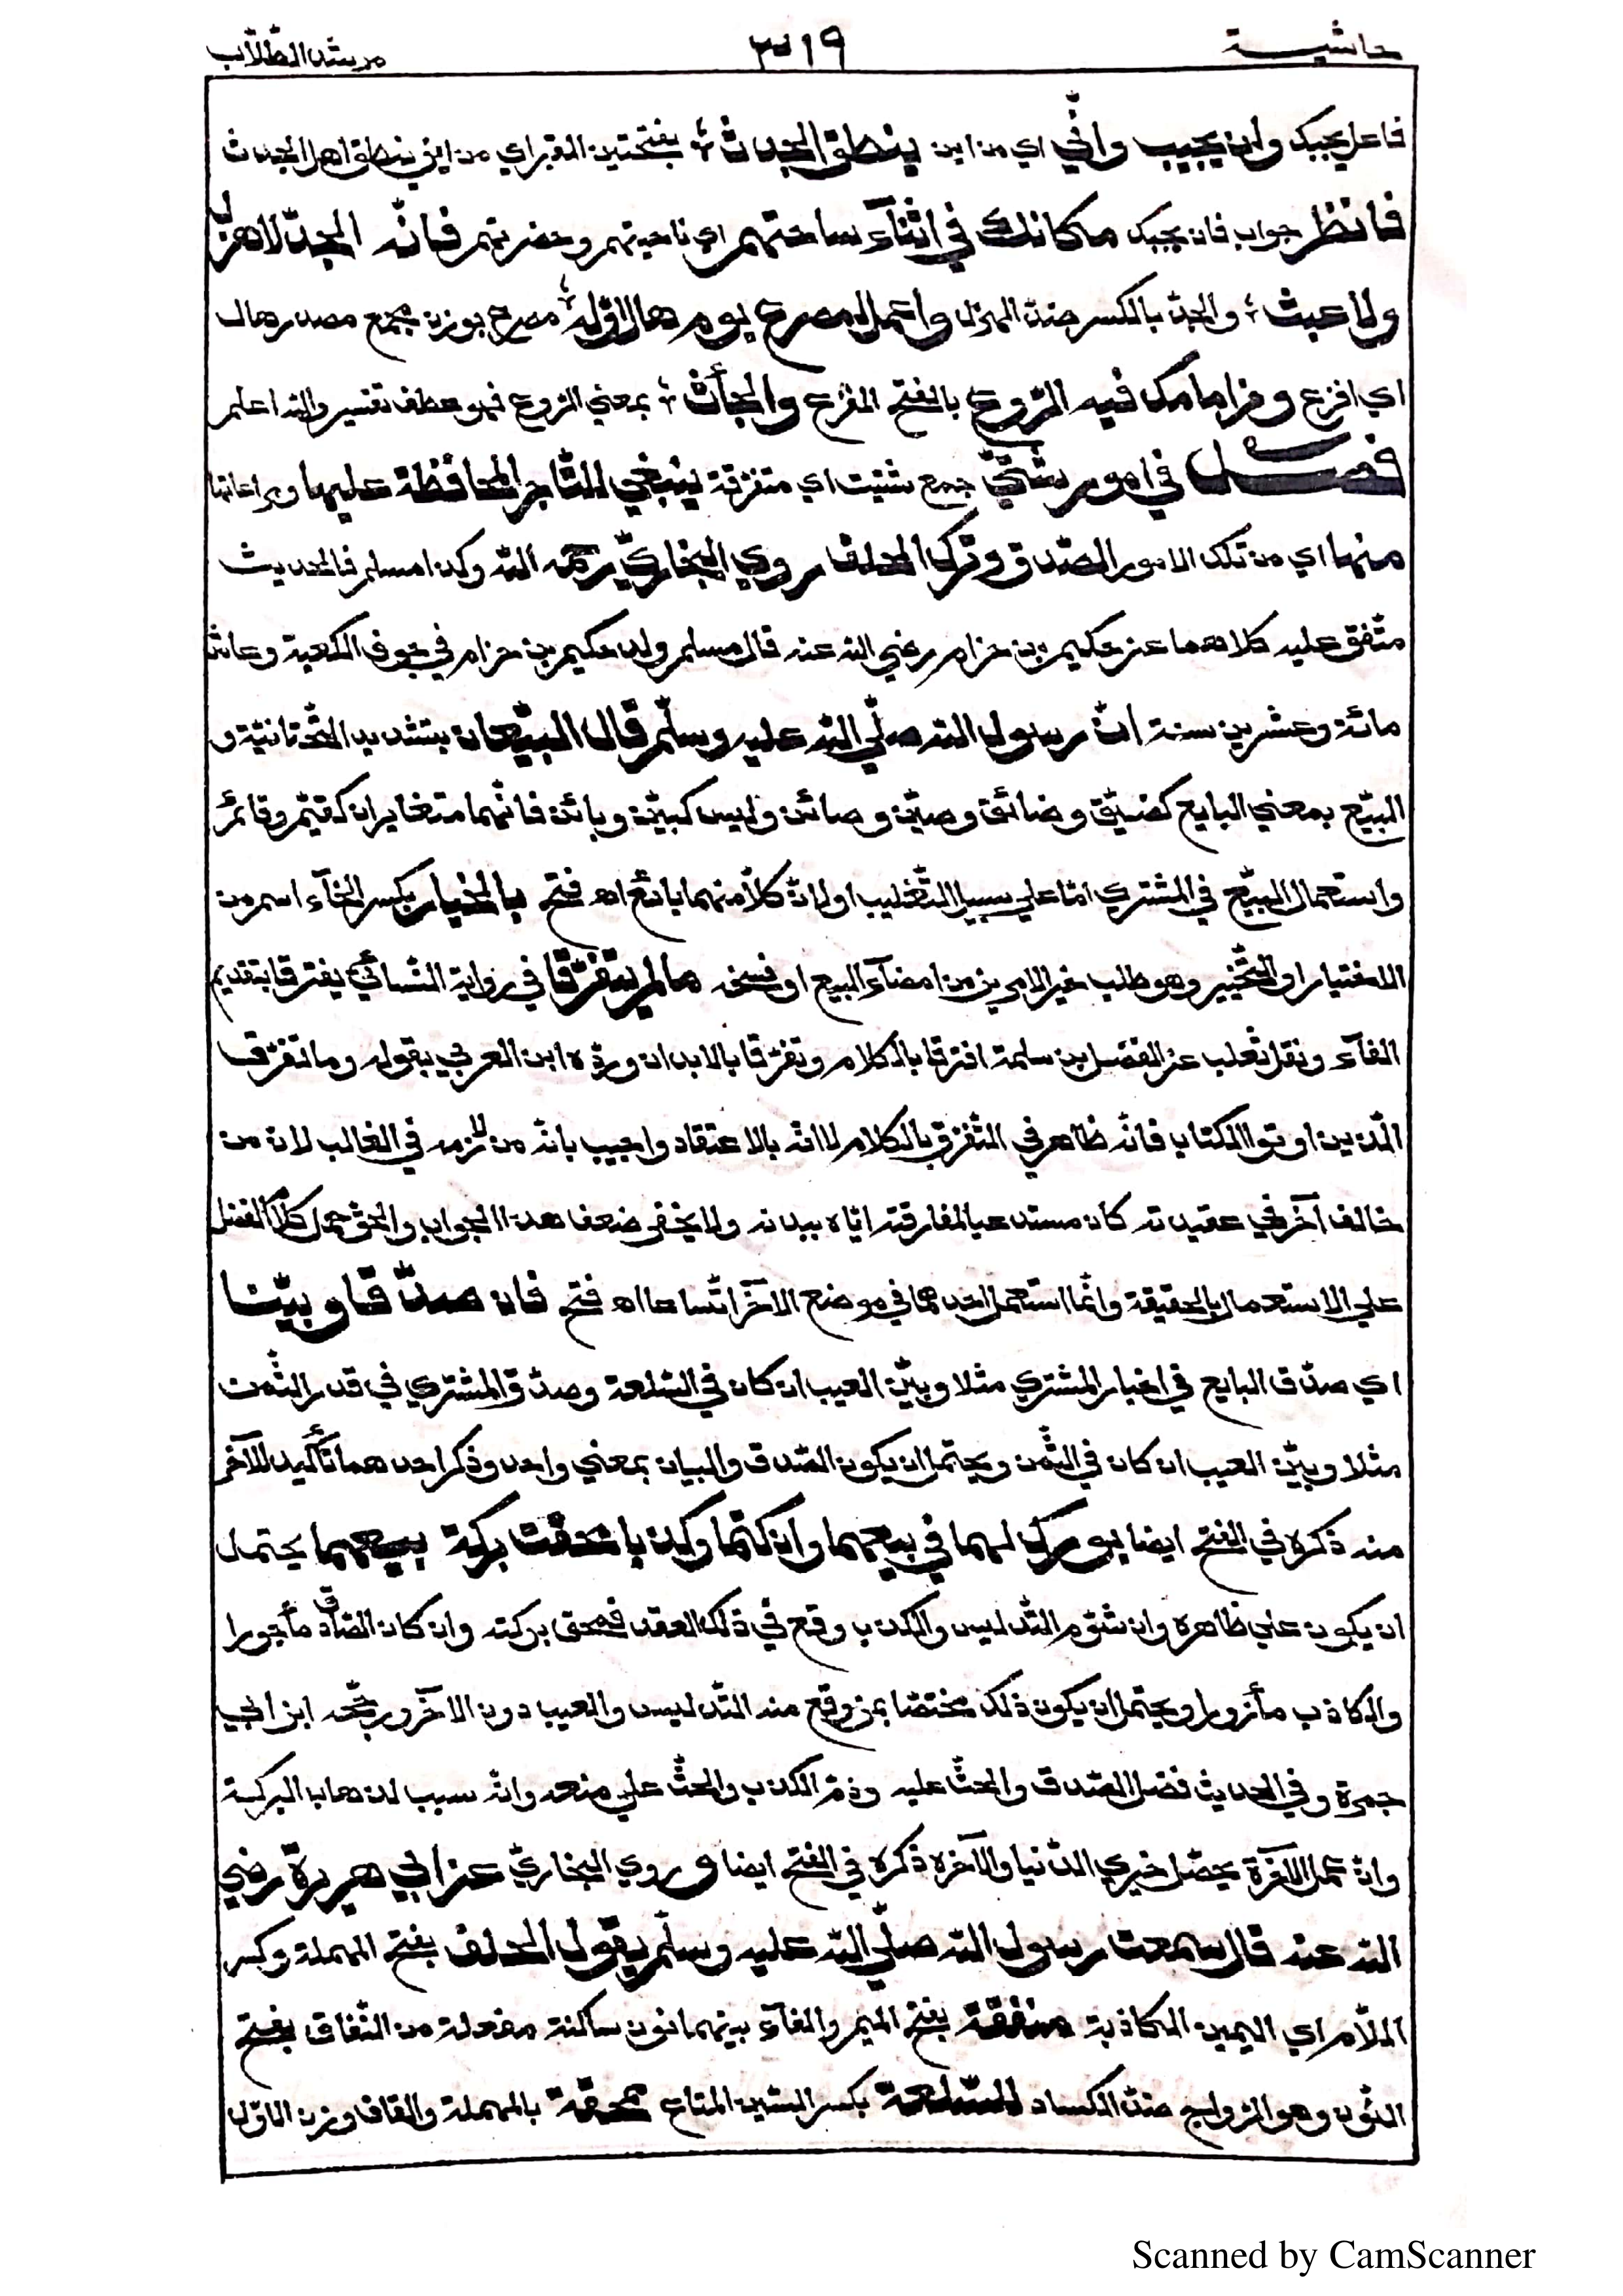 حاشية ٣١٩ مرشد الطّلّاب
فاعل يجيبك وان يجيب وانّي اي من اين ينطق الجدث ؛ بفتحتين القبر اي من اين ينطق اهل الجدث
فانظر جواب فان يجبك مكانك في اثنآء ساحتهم اي ناحيتهم وحضرتهم فانّه الجدّ لا هزل
ولا عبث ؛ والجدّ بالكسر ضدّ الهزل واعمل لمصرع يوم هال اوّله ؛ مصرع بوزن مجمع مصدر هال
اي افزع وفز امامك فيه الرّوع بالفتح الفزع والجأث ؛ بمعني الرّوع فهو عطف تفسير والله اعلم
فصل في امور شتّي جمع شتيت اي متفرّقة ينبغي للتّاجر المحافظة عليها ومراعاتها
منها اي من تلك الامور الصّدق وترك الحلف روي البخاريّ رحمه الله وكذا مسلم فالحديث
متّفق عليه كلاهما عن حكيم بن حزام رضي الله عنه قال مسلم ولد حكيم بن حزام في جوف الكعبة وعاش
مائة وعشرين سنة انّ رسول الله صلّي الله عليه وسلّم قال البيّعان بتشديد التّحتانيّة و
البيّع بمعني البايع كضيّق وضائق وصيّن وصائن وليس كبيّن وبائن فانّهما متغايران كقيّم وقائم
واستعمال البيّع في المشتري امّا علي سبيل التّغليب او لانّ كلّا منهما بائع اه فتح بالخيار بكسر الخآء اسم من
الاختيار او التّخيير وهو طلب خير الامرين من امضآء البيع او فسخه ما لم يتفرّقا في رواية النّسائيّ يفترقا بتقديم
الفآء ونقل ثعلب عن الفضل بن سلمة افترقا بالكلام وتفرّقا بالابدان وردّه ابن العربي بقوله وما تفرّق
الّذين اوتوا الكتاب فانّه ظاهر في التّفرّق بالكلام لا انّه بالاعتقاد واجيب بانّه من لازمه في الغالب لان من
خالف آخر في عقيدته كان مستدعيا لمفارقته ايّاه ببدنه ولا يخفي ضعف هذا الجواب والحقّ حمل كلام الفضل
علي الاستعمال بالحقيقة وانّما استعمل احدهما في موضع الآخر اتّساعا اه فتح فان صدّقا وبيّنا
اي صدّق البايع في اخبار المشتري مثلا وبيّن العيب ان كان في السّلعة وصدّق المشتري في قدر الثّمن
مثلا وبيّن العيب ان كان في الثّمن ويحتمل ان يكون الصّدق والبيان بمعني واحد وذكر احدهما تأكيد للآخر
منه ذكره في الفتح ايضا بورك لهما في بيعهما وان كتما وكذبا محقت بركة بيعهما يحتمل
ان يكون علي ظاهره وان شؤم التّدليس والكذب وقع في ذلك العقد فمحق بركته وان كان الصّادق مأجورا
والكاذب مأزورا ويحتمل ان يكون ذلك مختصّا بمن وقع منه التّدليس والعيب دون الآخر ورجّحه ابن ابي
جمرة وفي الحديث فضل الصّدق والحثّ عليه وذمّ الكذب والحثّ علي منعه وانّه سبب لذهاب البركة
وانّ عمل الآخرة يحصّل خيري الدّنيا والآخرة ذكره في الفتح ايضا وروي البخاريّ عن ابي هريرة رضي
الله عنه قال سمعت رسول الله صلّي الله عليه وسلّم يقول الحلف بفتح المهملة وكسر
اللّام اي اليمين الكاذبة منفقة بفتح الميم والفآء بينهما نون ساكنة مفعلة من النّفاق بفتح
النّون وهو الرّواج ضدّ الكساد للسّلعة بكسر السّين المتاع ممحقة بالمهملة والقاف وزن الاوّل
Scanned by CamScanner